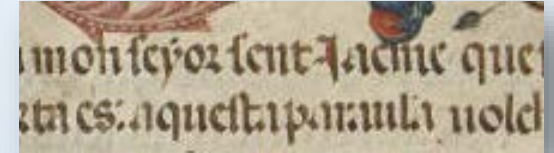 mon seyor sent Jacme que
ta es: aquesta paraula uolch